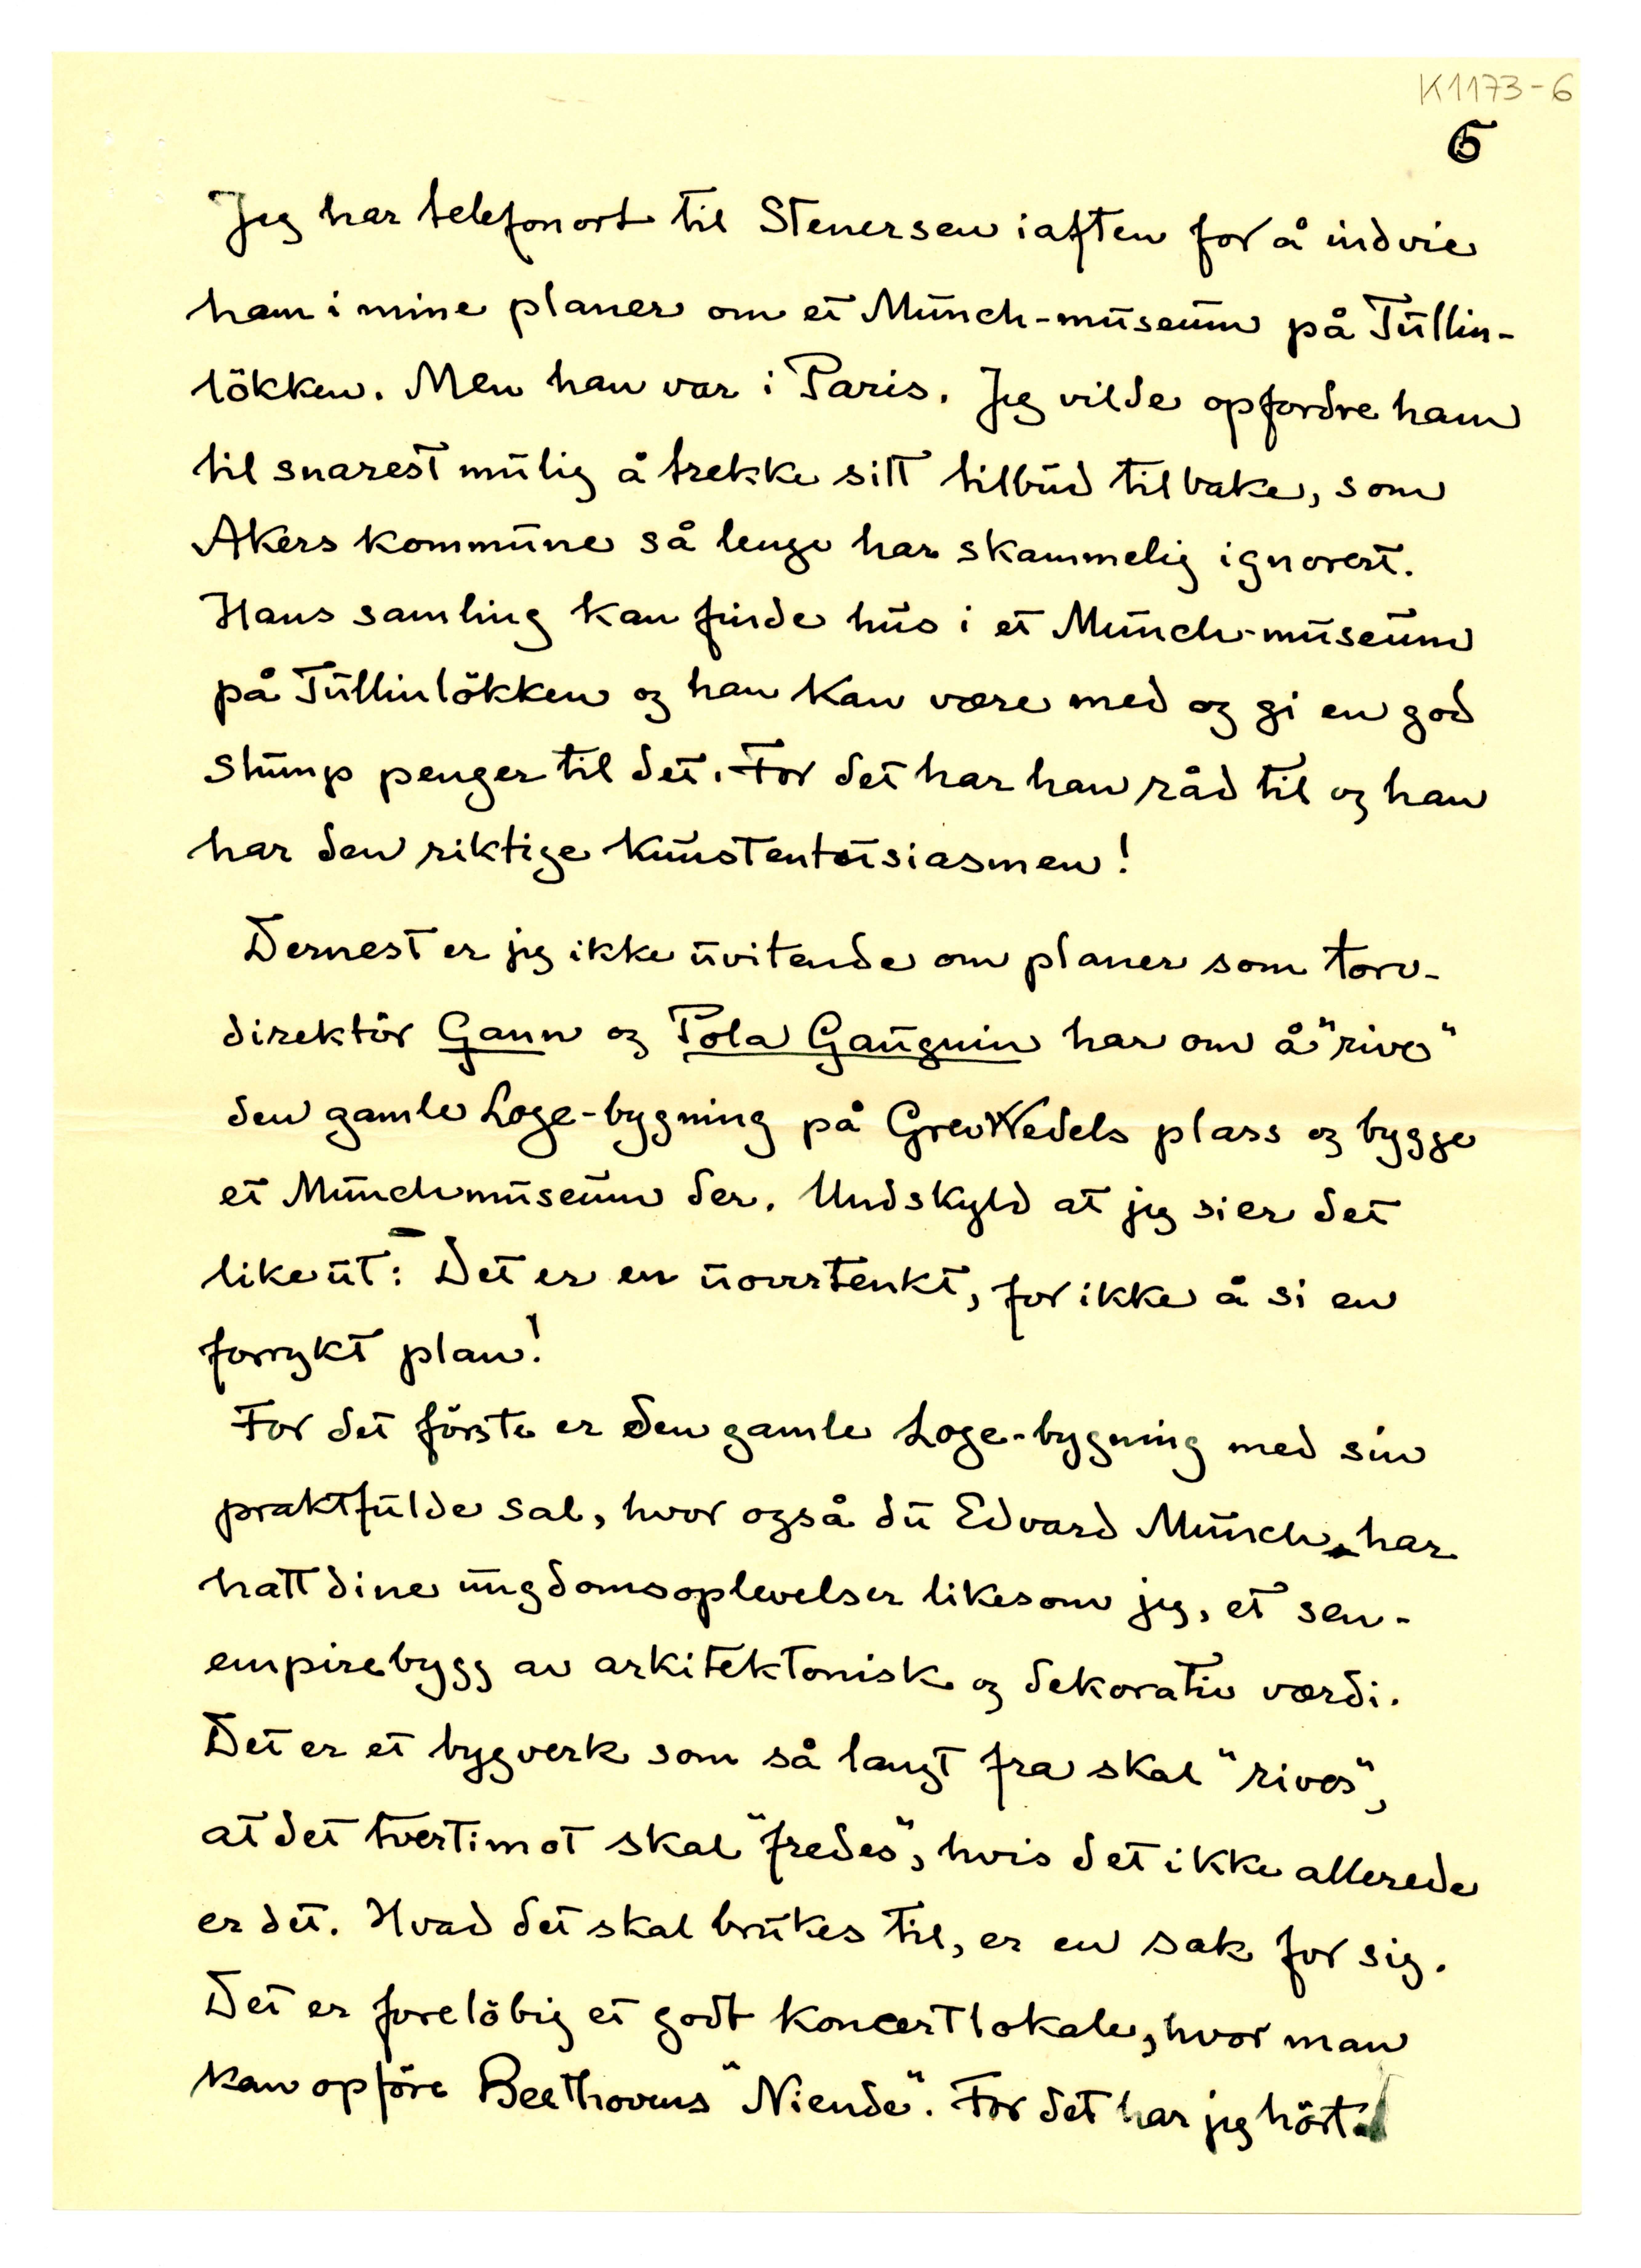 K1173-6
6
Jeg har telefonert til Stenersen iaften for å indvie
ham i mine planer om et Munch-museum på Tullin-
lökken. Men han var i Paris. Jeg vilde opfordre ham
til snarest mulig å trekke sitt tilbud tilbake, som
Akers kommune så lenge har skammelig ignorert.
Hans samling kan finde hus i et Munch-museum
på Tullinlökken og han kan være med og gi en god
slump penger til det. For det har han råd til og han
har den riktige kunstentusiasmen!
Dernest er jeg ikke uvitende om planer som torv-
direktör Gann og Pola Gauguin har om å "rive"
den gamle Loge-bygning på Grev Wedels plass og bygge
et Munchmuseum der. Undskyld at jeg sier det
like ut: Det er en uovertenkt, for ikke å si en
forrykt plan!
For det förste er den gamle Loge-bygning med sin
praktfulde sal, hvor også du Edvard Munch har
hatt dine ungdomsoplevelser likesom jeg, et sen-
empirebygg av arkitektonisk og dekorativ værdi.
Det er et bygverk som så langt fra skal "rives",
at det tvertimot skal "fredes", hvis det ikke allerede
er det. Hvad det skal brukes til, er en sak for sig.
Det er forelöbig et godt koncertlokale, hvor man
kan opföre Beethovens "Niende". For det har jeg hört